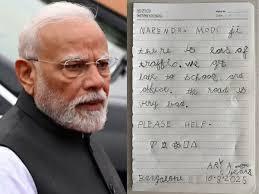 NARENDRA MODI ji
there is lots of
traffic. we get
late to school and
office. the road is
very bad.
PLEASE HELP.
ARYA
5 years
Bangalore 10-8-2025